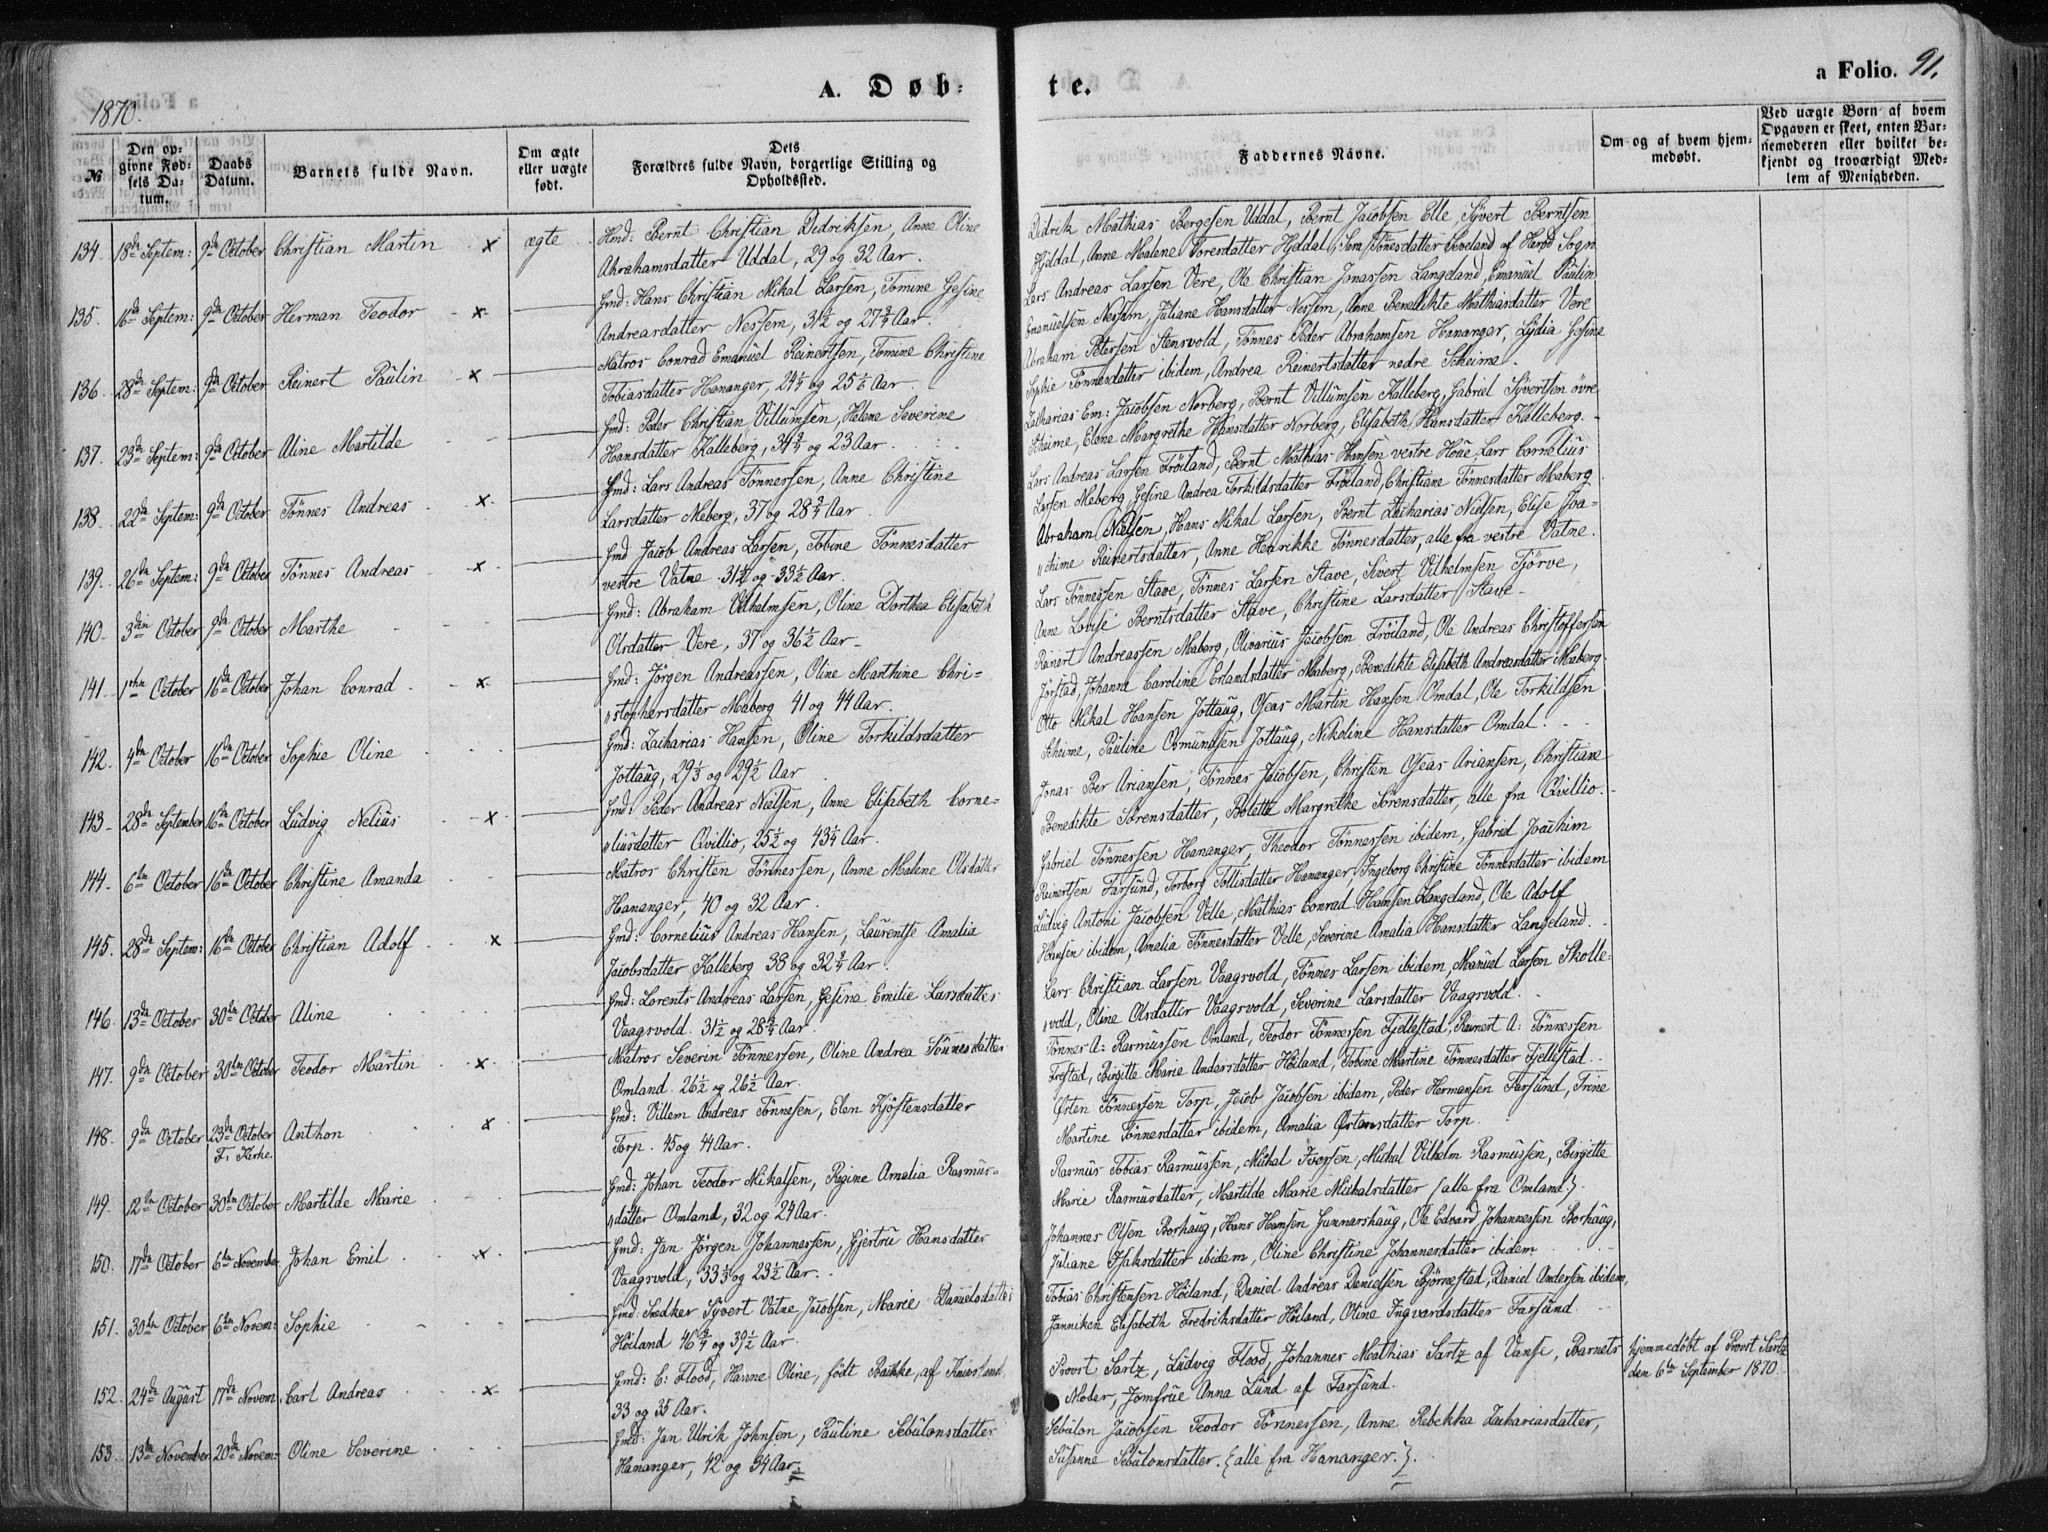 1870.
A. Døb=
te.
a Folio. 91.
№
Den opgivne Fødsels Datum.
Daabs Datum.
Barnets fulde Navn.
Om ægte eller uægte født.
Dets Forældres fulde Navn, borgerlige Stilling og Opholdssted.
Faddernes Navne.
Om og af hvem hjemmedøbt.
Ved uægte Børn af hvem Opgaven er skeet, enten Barnemoderen eller hvilket bekjendt og troværdigt Medlem af Menigheden.
134. 18de Septem: 9de October Christian Martin x ægte Gmd: Bernt Christian Didriksen, Anne Oline
Abrahamsdatter Uddal, 29 og 32 Aar.
Didrik Mathias Bergesen Uddal, Bernt Jacobsen Elle, Syvert Berntsen
Hjddal, Anne Malene Toresdatter Hjddal, Tønnesdatter af Herød Sogn
135. 16de Septem: 9de October Herman Teodor x Gmd: Hans Christian Mikal Larsen, Tomine Gesine
Andreasdatter Nessem, 31½ og 27¾ Aar.
Lars Andreas Larsen Vere, Ole Christian Jonassen Langeland, Emanuel Paulin
Emanuelsen Nessem, Juliane Hansdatter Nessem, Anne Benedikte Mathiasdatter Vere
136. 28de Septem: 9de October Reinert Paulin x Matros Conrad Emanuel Reinertsen, Tomine Christine
Tobiasdatter Hananger, 24 og 25 Aar.
Abraham Petersen Stensvold, Tønnes Peder Abrahamsen Hananger, Lydia Gesine
Sophie Tønnesdatter ibidem, Andrea Reinertsdatter nedre Scheime.
137. 23de Septem: 9de October Aline Martilde Gmd: Peder Christian Villumsen, Helene Severine
Hansdatter Kalleberg, 34¾ og 23 Aar.
Zacharias Em: Jacobsen Norberg, Bernt Villumsen Kalleberg, Gabriel Syvertsen øvre
Scheime, Elene Margrethe Hansdatter Norberg, Elisabeth Hansdatter Kalleberg.
138. 22de Septem: 9de October Tønnes Andreas x Gmd: Lars Andreas Tønnessen, Anne Christine
Larsdatter Meberg, 37 og 28¾ Aar.
Lars Andreas Larsen Frøiland, Bernt Mathias Hansen vestre Houe, Lars Cornelius
Larsen Meberg, Gesine Andrea Torkildsdatter Frøiland, Christiane Tønnesdatter Maberg
139. 26de Septem: 9de October Tønnes Andreas x Gmd Jacob Andreas Larsen, Tobine Tønnesdatter
vestre Vatne 31¾ og 33½ Aar.
Abraham Nielsen, Hans Mikal Larsen, Bernt Zacharias Nielsen, Elise Joa-
chime Reinertsdatter, Anne Henrikke Tønnesdatter, alle fra vestre Vatne.
140. 3die October 9de October Marthe Gmd: Abraham Vilhelmsen, Oline Dorthea Elisabeth
Olsdatter Vere, 37 og 36½ Aar.
Lars Tønnessen Stave, Tønnes Larsen Stave, Sivert Vilhelmsen Tjørve,
Anne Lovise Berntsdatter Stave, Christine Larsdatter Stave.
141. 1ste October 16de October Johan Conrad x Gmd: Jørgen Andreassen, Oline Marthine Chri-
stophersdatter Maberg 41 og 44 Aar.
Reinert Andreassen Maberg, Olivarius Jacobsen Frøiland, Ole Andreas Christoffersen
Jørstad, Johanna Caroline Erlandsdatter Maberg, Benedikte Elisabeth Andreasdatter Maberg.
142. 4de October 16de October Sophie Oline Gmd: Zacharias Hansen, Oline Torkildsdatter
Jottaug, 29⅓ og 29½ Aar
Otto Mikal Hansen Jottaug, Oseas Martin Hansen Omdal, Ole Torkildsen
Scheime, Pauline Osmundsen Jottaug, Nikoline Hansdatter Omdal.
143. 28de September 16de October Ludvig Nelius x Gmd: Peder Andreas Nielsen, Anne Elisabeth Corne-
liusdatter Qvillio, 25½ og 43¼ Aar.
Jonas Ber Ariansen, Tønnes Jacobsen, Christen Oseas Ariansen, Christiane
Benedikte Sørensdatter, Bolette Margrethe Sørensdatter, alle fra Qvillio.
144. 6te October 16de October Christine Amanda Matros Christen Tønnessen, Anne Malene Olsdatter
Hananger, 40 og 32 Aar.
Gabriel Tønnessen Hananger, Theodor Tønnessen ibidem, Gabriel Joachim
Reinertsen Farsund, Torborg Tollisdatter Hananger, Ingeborg Christine Tønnesdatter ibidem
145. 28de Septem: 16de October Christian Adolf x Gmd: Cornelius Andreas Hansen, Laurentse Amalia
Jacobsdatter Kalleberg 38 og 32¾ Aar.
Ludvig Antoni Jacobsen Velle, Mathias Conrad Hansen Langeland, Ole Adolf
Hansen ibidem, Amalia Tønnesdatter Velle, Severine Amalia Hansdatter Langeland.
146. 13de October 30te October Aline Gmd: Lorents Andreas Larsen, Gesine Emilie Larsdatter
Vaagsvold. 31½ og 28¾ Aar.
Lars Christian Larsen Vaagsvold, Tønnes Larsen ibidem, Manuel Larsen Skolle-
vold, Oline Olsdatter Vaagsvold, Severine Larsdatter Vaagsvold.
147. 9de October 30te October Teodor Martin x Matros Severin Tønnessen, Oline Andrea Tønnesdatter
Omland. 26½ og 26½ Aar.
Tønnes A: Rasmussen Omland, Teodor Tønnessen Fjellestad, Reinert A: Tønnessen
Frestad, Birgitte Marie Andersdatter Høiland, Tobine Martine Tønnesdatter Fjellestad.
148. 9de October 23de October F. Kirke Anthon x Gmd: Villem Andreas Tønnesen, Elen Kjøstensdatter
Torp. 45 og 44 Aar.
Østen Tønnessen Torp, Jacob Jacobsen ibidem, Peder Hermansen Farsund, Trine
Martine Tønnesdatter ibidem, Amalia Østensdatter Torp.
149. 12te October 30te October Martilde Marie Gmd: Johan Teodor Mikalsen, Regine Amalia Rasmus-
datter Omland, 32 og 24 Aar.
Rasmus Tobias Rasmussen, Mikal Iversen, Mikal Vilhelm Rasmussen, Birgitte
Marie Rasmusdatter, Martilde Marie Mickalsdatter (alle fra Omland).
150. 17de October 6te November Johan Emil x Gmd: Jan Jørgen Johannessen, Gjertru Hansdatter
Vaagsvold, 33⅓ og 23½ Aar.
Johannes Olsen Borhaug, Hans Hansen Gunnarshaug, Ole Edvard Johannessen Borhaug,
Juliane Isaksdatter ibidem, Oline Christine Johannesdatter ibidem
151. 30te October 6te Novem: Sophie Gmd: Snedker Syvert Vatne Jacobsen, Marie Danielsdatter
Høiland 46¾ og 39½ Aar.
Tobias Christensen Høiland, Daniel Andreas Danielsen Bjørnestad, Daniel Andersen ibidem,
Janniken Elisabeth Fredriksdatter Høiland, Oline Ingvardsdatter Farsund
152. 24de August 17de Novem: Carl Andreas x Gmd: E: Flood, Hanne Oline, født Bakke, af
33 og 35 Aar.
Provst Sartz, Ludvig Flood, Johannes Mathias Sartz af Vanse, Barnets
Moder, Jomfrue Anna Lund af Farsund.
hjemmedøbt af Provst Sartz
den 6te September 1870.
153. 13de November 20de Novem: Oline Severine Gmd: Jan Ulrik Johnsen, Pauline Sebulonsdatter
Hananger, 42 og 34 Aar.
Sebulon Jacobsen Teodor Tønnessen, Anne Rebekka Zachariasdatter,
Susanne Sebulonsdatter. (alle fra Hananger.).